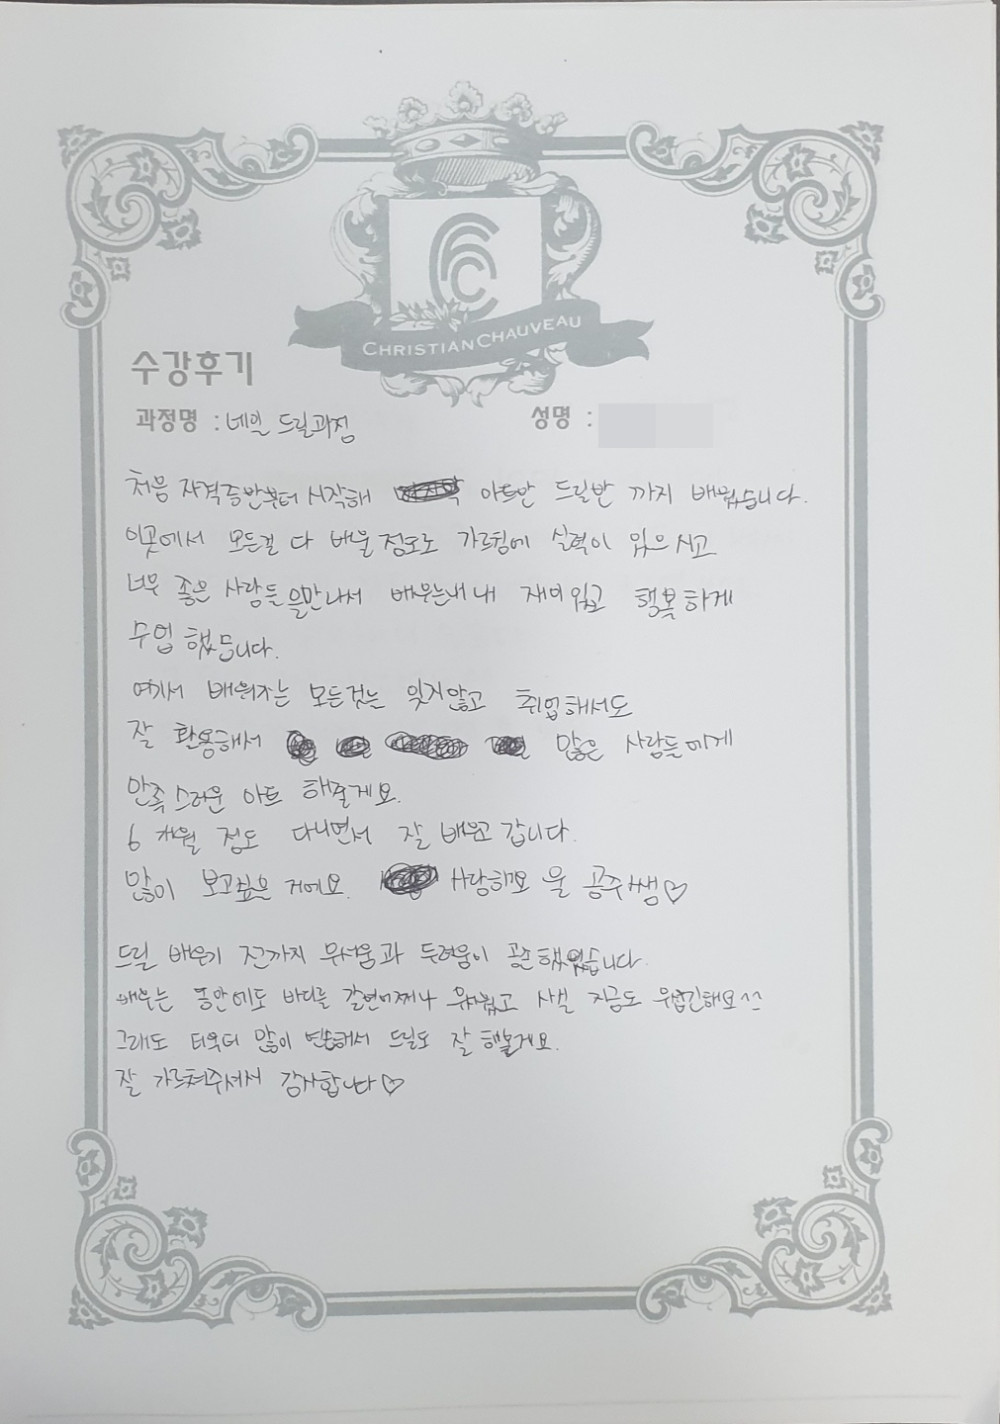 CHRISTIAN CHAUVEAU
수강후기
과정명 : 네일 드릴과정
성명 :
처음 자격증반부터 시작해 아트반 드릴반 까지 배웠습니다.
이곳에서 모든걸 다 배울 정도로 가르침에 실력이 있으시고
너무 좋은 사람들을만나서 배우는내내 재미있고 행복하게
수업 했습니다.
여기서 배워가는 모든것는 잊지않고 취업해서도
잘 활용해서 많은 사람들에게
만족스러운 아트 해줄게요.
6 개월 정도 다니면서 잘 배우고 갑니다.
많이 보고싶은 거에요. 사랑해요 울 공주쌤♡
드릴 배우기 전까지 무서움과 두려움이 공존했었습니다.
배우는 동안에도 바디를 무섭고 사실 지금도 무섭긴해요^^
그래도 더욱더 많이 연습해서 드릴도 잘 해볼게요.
잘 가르쳐주셔서 감사합니다♡